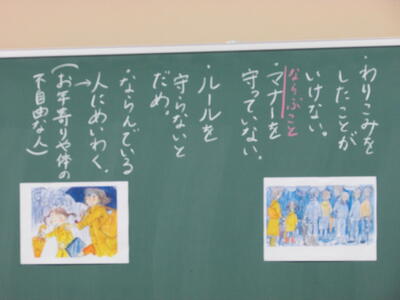 ・わりこみを
したことが
いけない。
ならぶこと
・マナーを
守っていない。
・ルールを
守らないと
だめ。
・ならんでいる
→人にめいわく。
(お年寄りや体の
不自由な人)